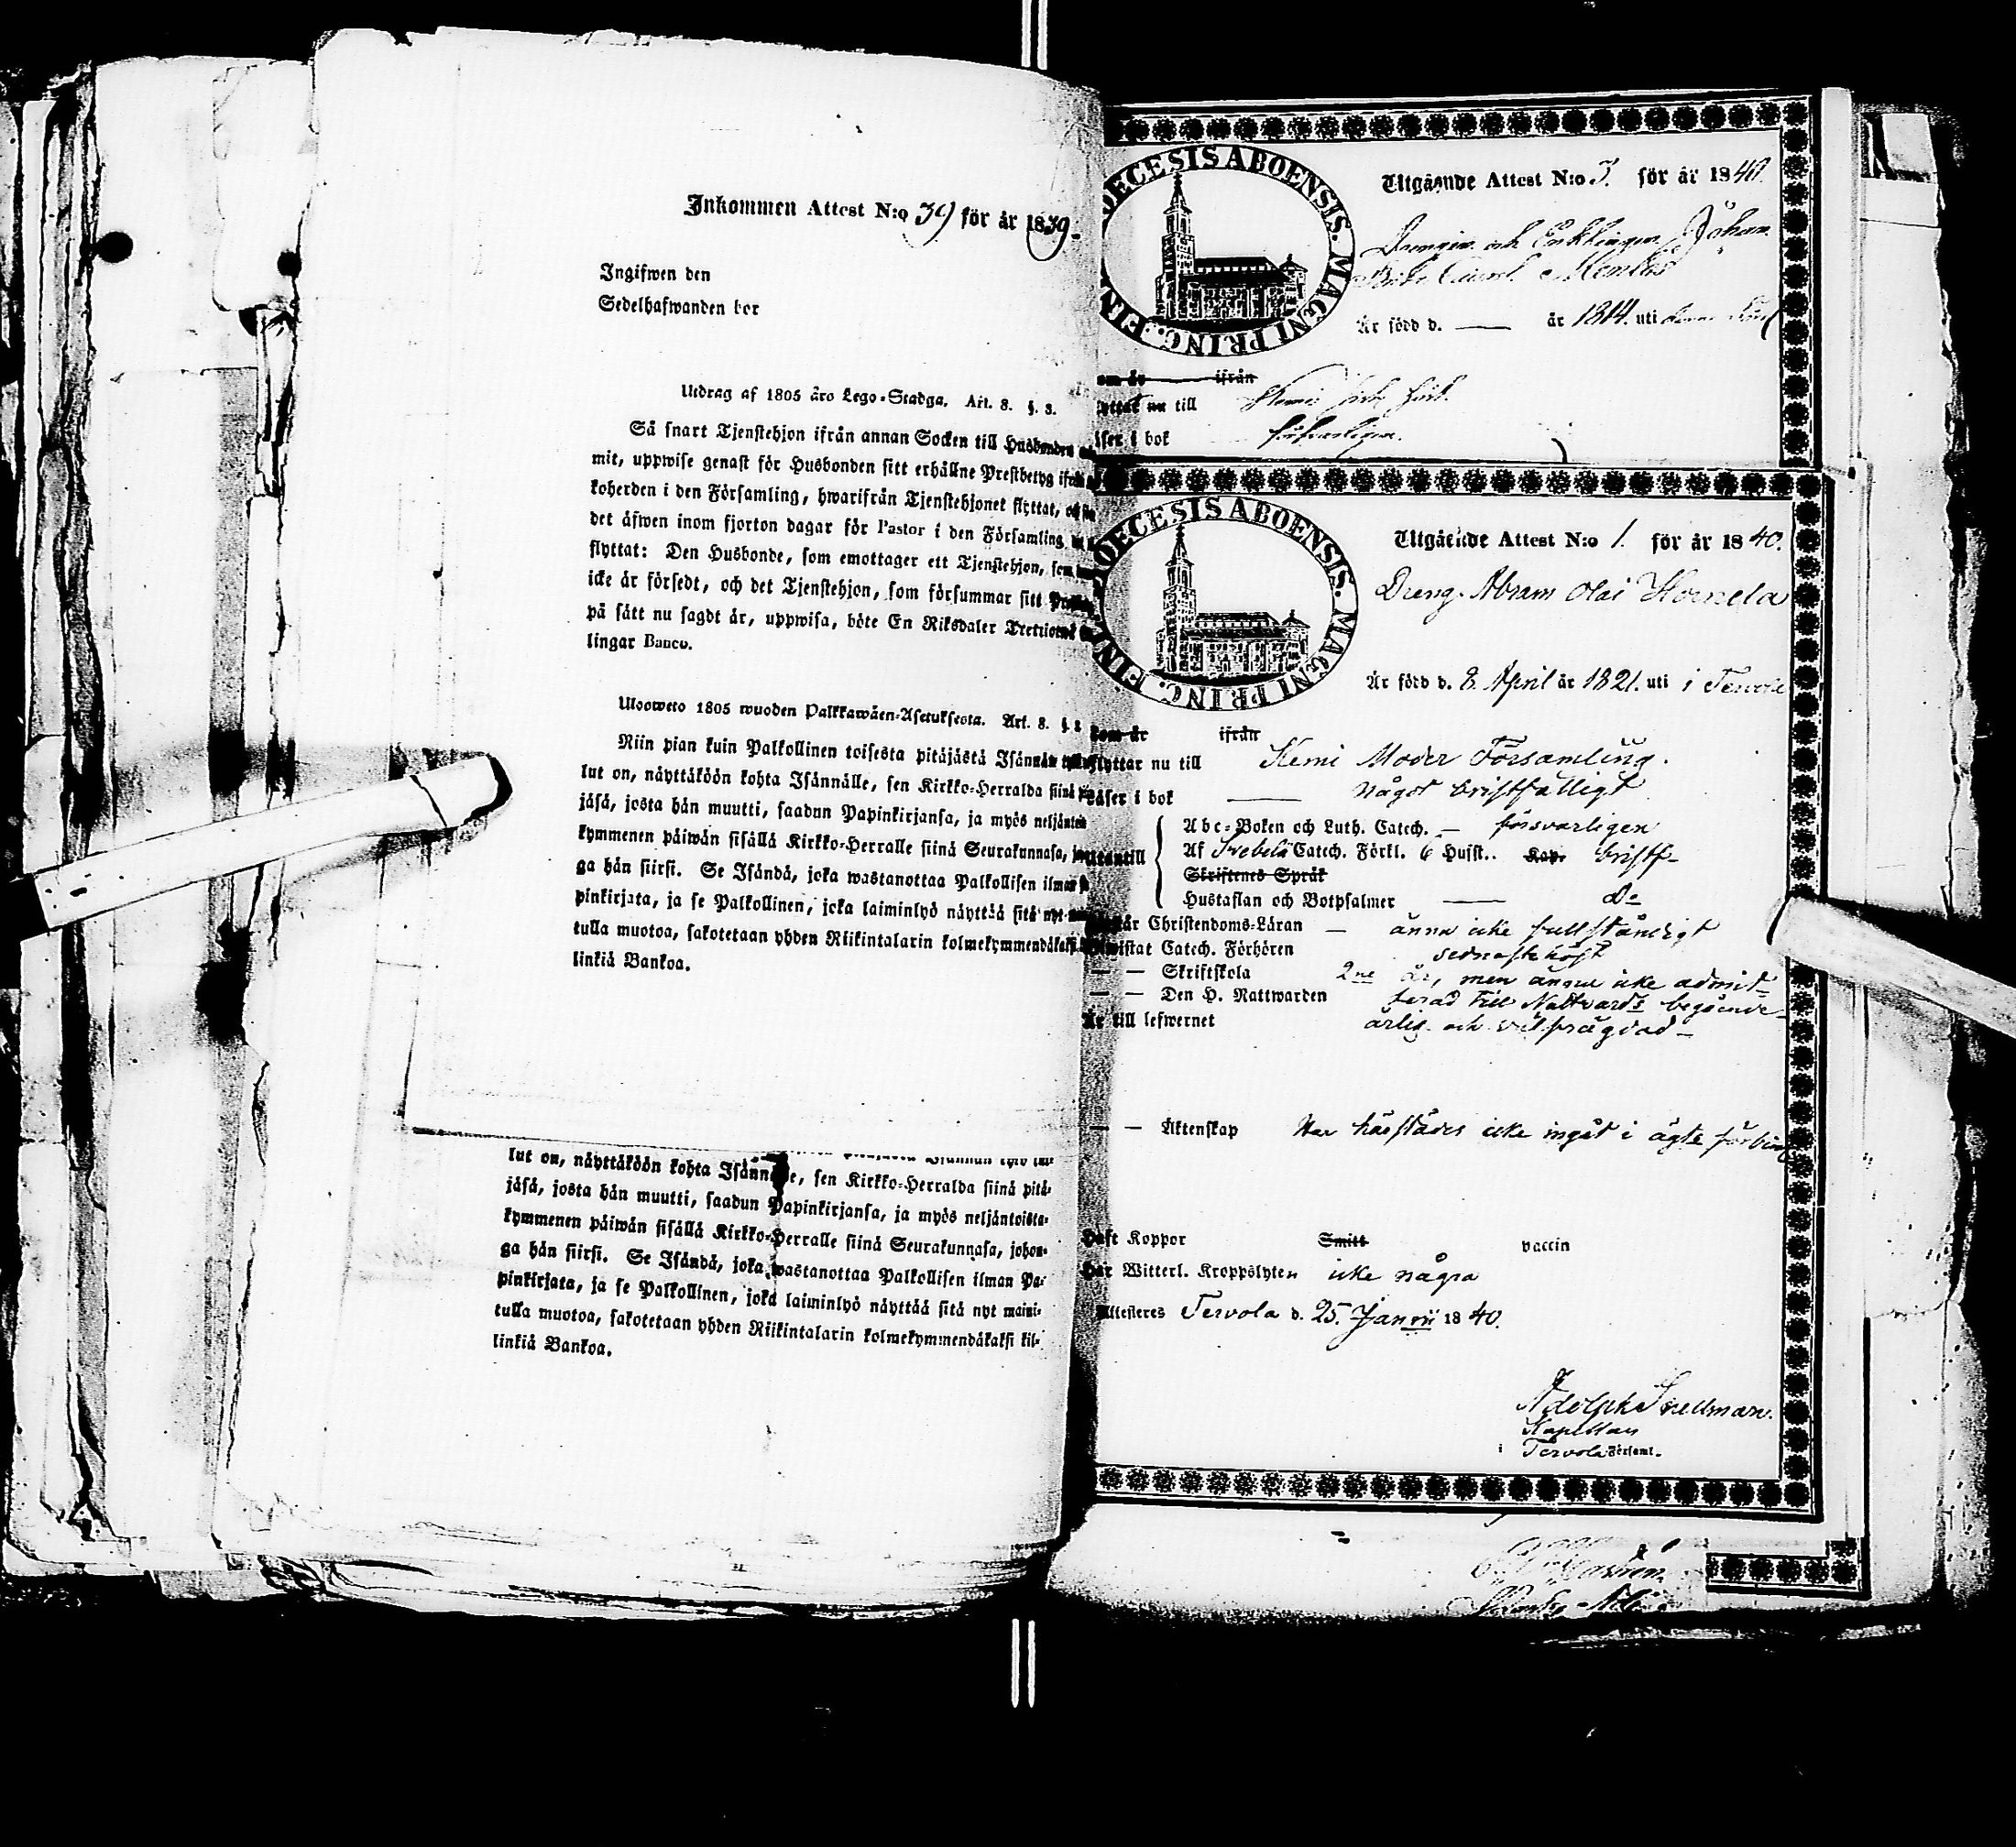 Inkommen Attest N:o 39 för år 1839.
Ingifwen den
Sedelhafwanden bor
Utdrag af 1805 åro Lego-Stadga. Art. 8. §. 3.
Så snart Tjenstehjon ifrån annan Socken till Husbonden
mit, uppwise genast för Husbonden sitt erhållne Prestbetyg
koherden i den Församling, hwarifrån Tjenstehjonet flyttat,
det äfwen inom fjorton dagar för Pastor i den Församling
flyttat: Den Husbonde, som emottager ett Tjenstehjon,
icke är försedt, och det Tjenstehjon, som försummar sitt
på sätt nu sagdt är, uppwisa, böte En Riksdaler
lingar Banco.
Ulosweto 1805 wuoden Palkkawäen-Asetuksesta. Art. 8. §.
Niin pian kuin Palkollinen toisesta pitäjästä Isännän
lut on, näyttäköön kohta Isännälle, sen Kirkko-Herralda siinä
jäsä, josta hän muutti, saadun Papinkirjansa, ja myös neljänten
kymmenen päiwän sisällä Kirkko-Herralle siinä Seurakunnasa,
ga hän siirsi. Se Isändä, joka wastanottaa Palkollisen ilman
pinkirjata, ja se Palkollinen, joka laiminlyö näyttää sitä nyt
tulla muotoa, sakotetaan yhden Riikintalarin kolmekymmendäkaksi
linkiä Bankoa.
lut on, näyttäköön kohta Isännälle, sen Kirkko-Herralda siinä pitä-
jäsä, josta hän muutti, saadun Papinkirjansa, ja myös neljäntoista-
kymmenen päiwän sisällä Kirkko-Herralle siinä Seurakunnasa, johon-
ga hän siirsi. Se Isändä, joka wastanottaa Palkollisen ilman Pa-
pinkirjata, ja se Palkollinen, joka laiminlyö näyttää sitä nyt maini-
tulla muotoa, sakotetaan yhden Riikintalarin kolmekymmendäkaksi kil-
linkiä Bankoa.
DIOECESIS ABOENSIS. MAGNI PRINC. FIN
Utgående Attest N:o 3. för år 1840.
Drengen och Enklingen Johan
Är född d. — år 1814. uti
om är ifrån
flyttat nu till Kemi
läser i bok försvarligen.
DIOECESIS ABOENSIS. MAGNI PRINC. FIN
Utgående Attest N:o 1. för år 1840.
Dreng. Abram Olai Hornela
Är född d. 8. April år 1821. uti i Tervola
som är ifrån
flyttar nu till Kemi Moder Församling.
läser i bok — något bristfälligt
Abc-Boken och Luth. Catech. — försvarligen
Af Svebelii Catech. Förkl. 6 Husst.. Kap. bristf-
Skriftenes Språk
Hustaflan och Botpsalmer — do
Christendoms-Läran — änna icke fullständigt
Catech. Förhören sednaste höst
— — Skriftskola 2ne år, men ännu icke admit-
— — Den H. Nattwarden terad till Nattvards begående-
Är till lefwernet ärlig och välfrägdad-
— — Äktenskap Har härstädes icke ingåt i ägta förbind
Haft Koppor Smitt vaccin
Har Witterl. Kroppslyten icke några
Attesteres Tervola d. 25. Januii 1840.
Adolph Snellman.
Kapellan
i Tervola Församl.